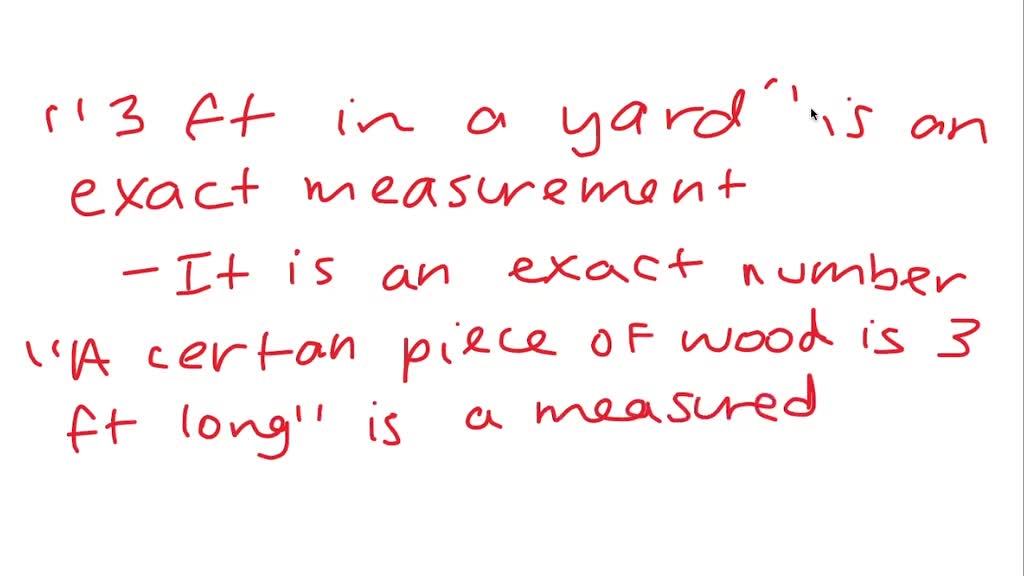 "3 ft in a yard" is an
exact measurement
- It is an exact number
"A certan piece of wood is 3
ft long" is a measured